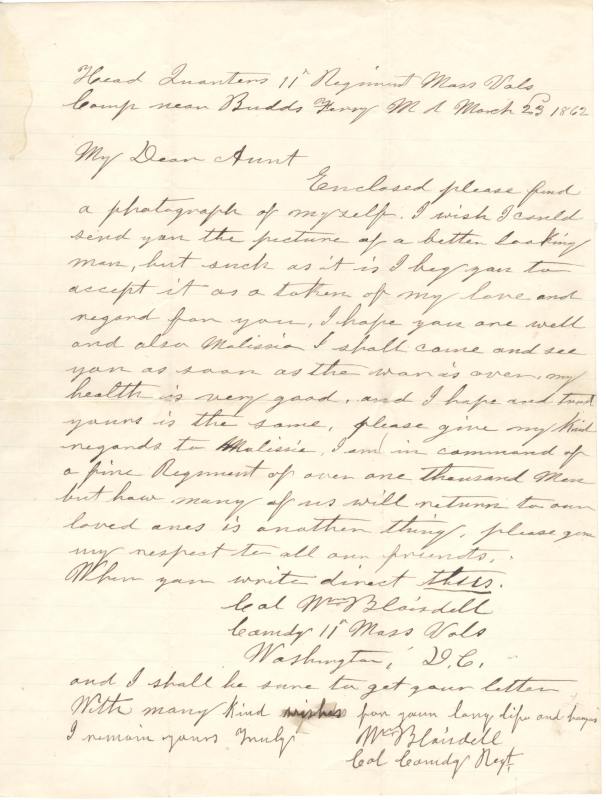 Head Quarters 11" Regiment Mass Vols
Camp near Budds Ferry M d March 23 1862
My Dear Aunt
Enclosed please find
a photograph of myself. I wish I could
send you the picture of a better looking
man, but such as it is I beg you to
accept it as a token of my love and
regard for you, I hope you are well
and also Malissia I shall come and see
you as soon as the war is over, my
health is very good, and I hope and trust
yours is the same, please give my kind
regards to Malissia, I am in command of
a fine Regiment of over one thousand Men
but how many of us will return to our
loved ones is another thing, please give
my respect to all our friends,
When you write direct thus.
Col Wm Blaisdell
Comdg 11" Mass Vols
Washington, D.C.
and I shall be sure to get your letter
With many kind wishes for your long life and
I remain yours Truly
Wm Blaisdell
Col Comdg Regt.